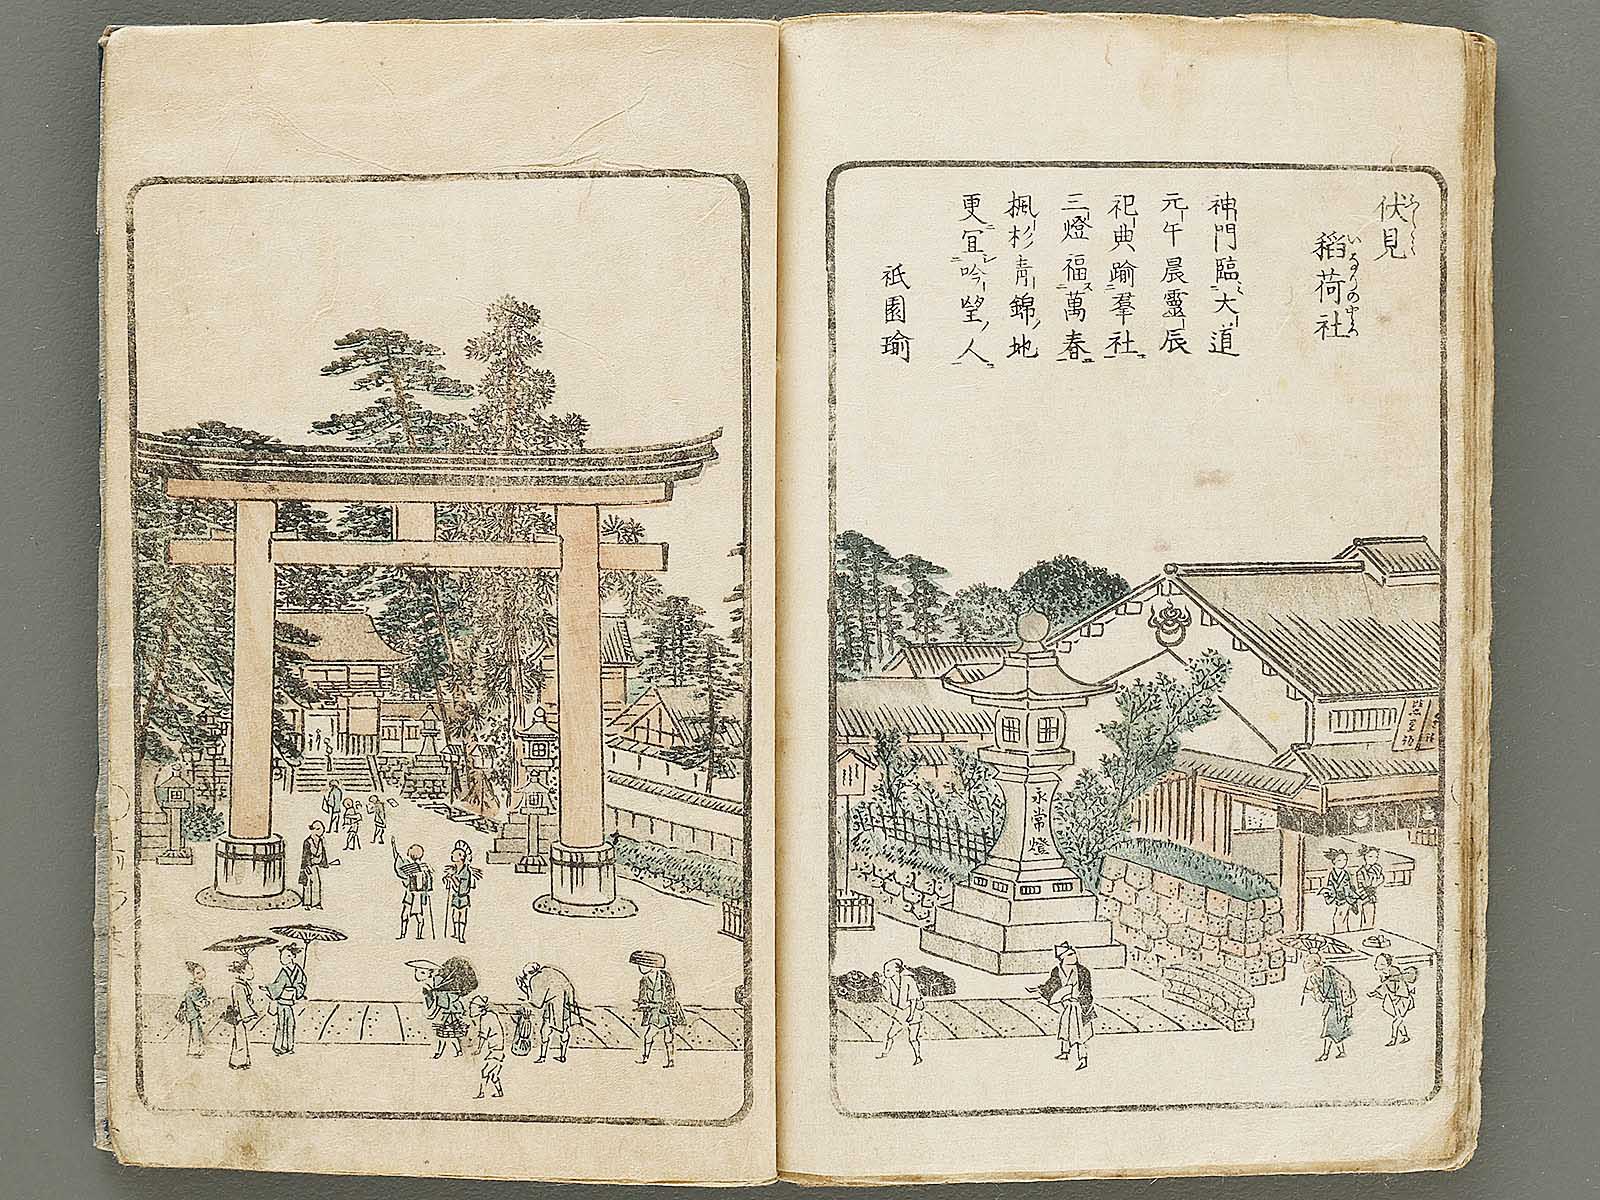 伏見
稲荷社
いなりのやしろ
神門臨大道
元午晨靈辰
祀典踰羣社
三燈福萬春
楓杉青錦地
更冝吟望人
祇園瑜
永常燈